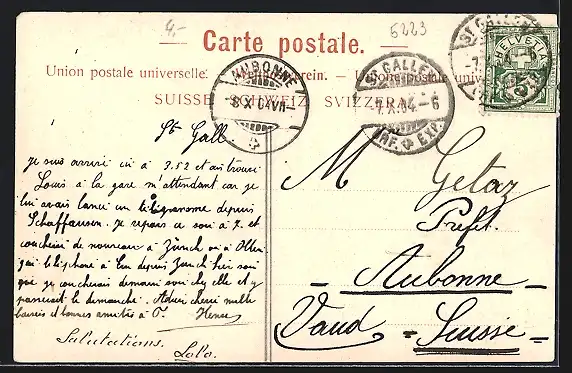 4.-
5223
— Carte postale. —
Union postale universelle. — Weltpostverein. — Unione postale universale
SUISSE SCHWEIZ SVIZZERA
AUBONNE
8.X.04.VII-
ST. GALLEN
7.X.04.-6
BRF. EXP.
ST. GALLEN
HELVETIA
St Gall.
Je suis arrivé ici à 3.52 et ai trouvé
Louis à la gare m'attendant car je
lui avais lancé un télégramme depuis
Schaffausen. Je repars ce soir à 7. et
coucherai de nouveau à Zürich ou à Olten.
J'ai téléphoné à depuis Zurich hier soir
que je coucherais demain soir chez elle et y
passerait le dimanche. Adieu chérie mille
baisers et bonnes amitiés à P. Henri
Salutations.
Lolo.
M Getaz
Préfet.
Aubonne
Vaud = Suisse =